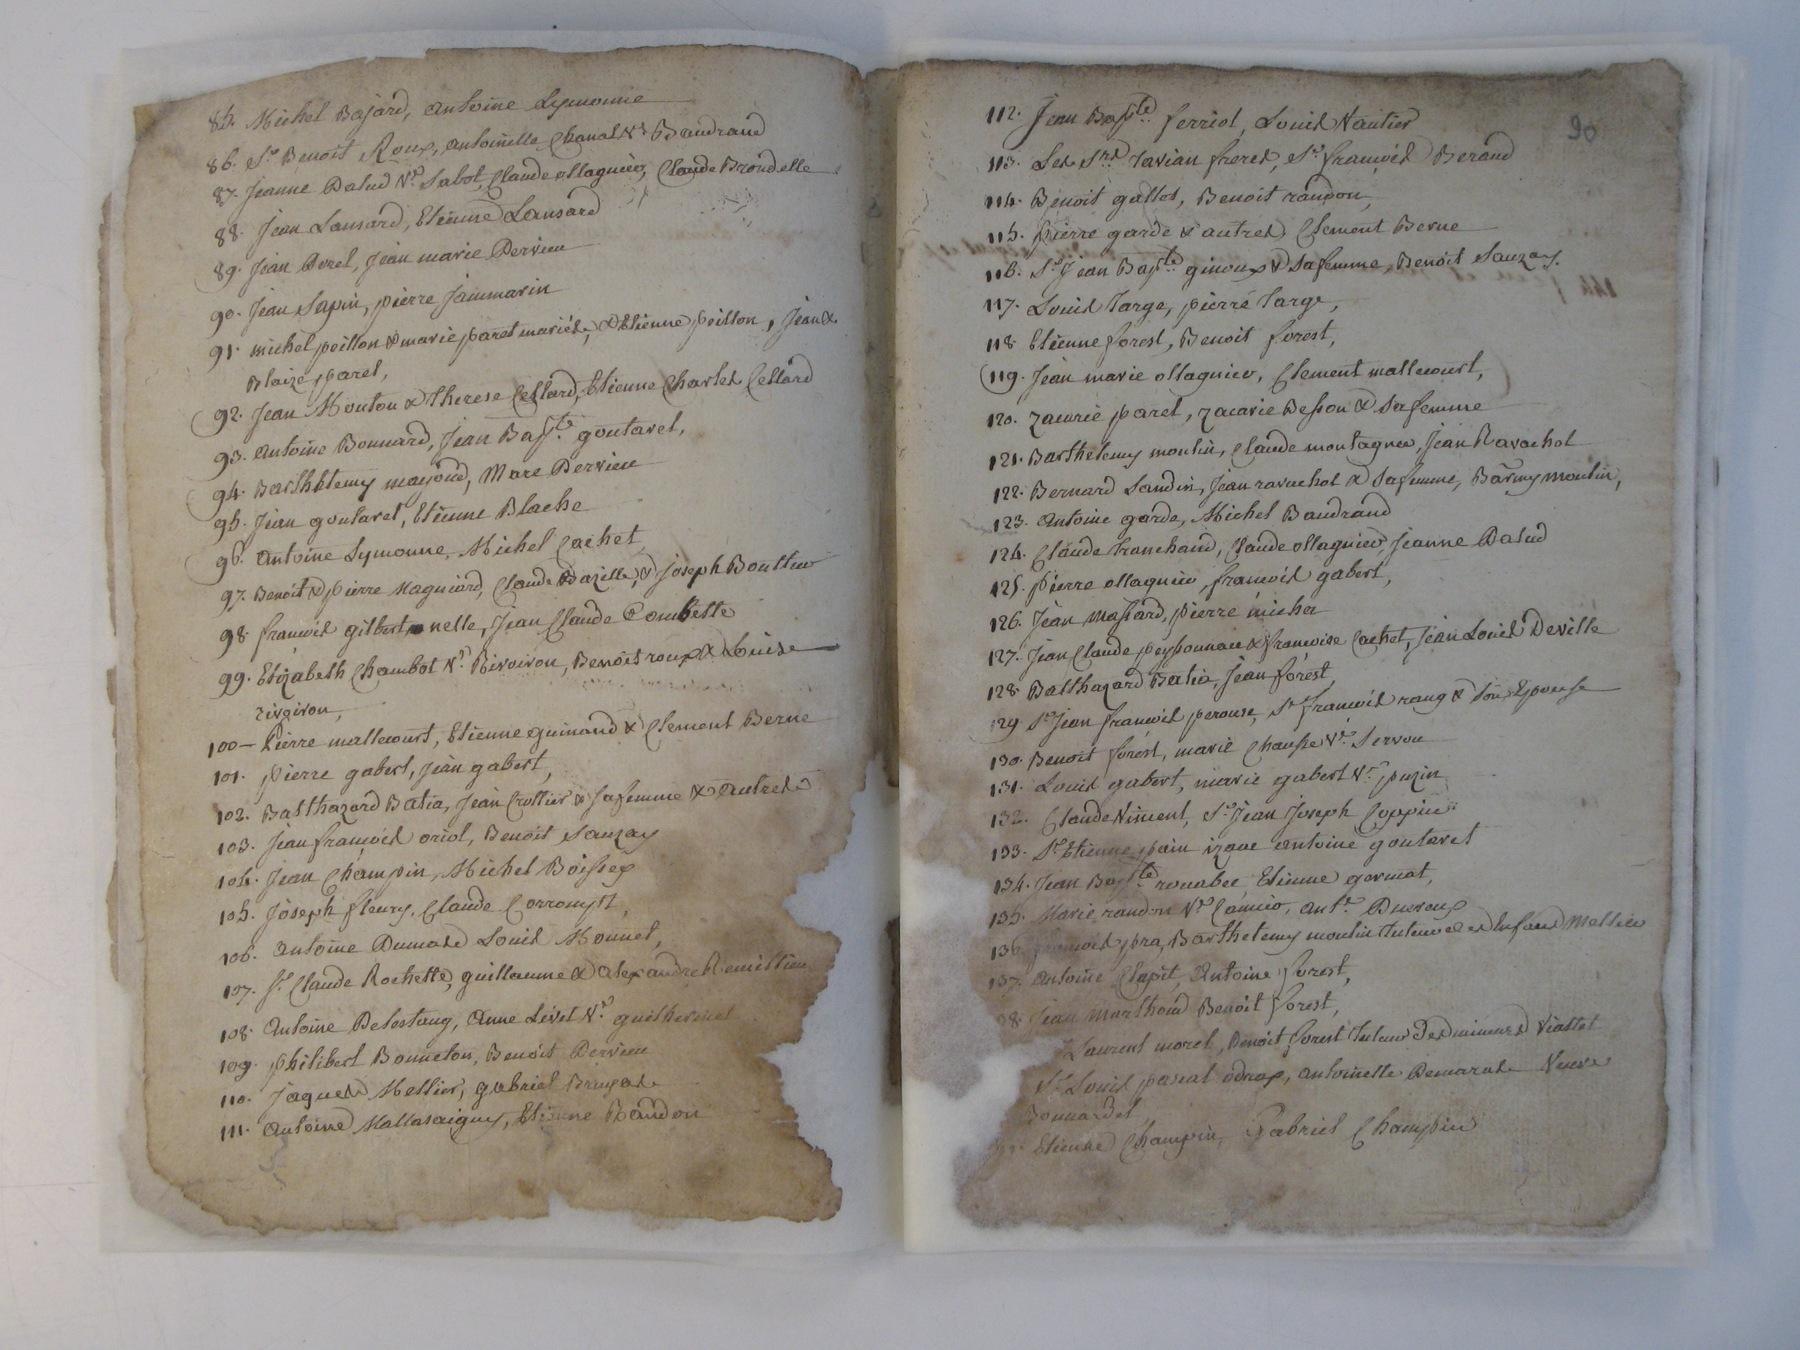 85. Michel Bajard, antoine Lymonne
86. Sr Benoit Roux, antoinette Chanal Ve Baudrand
87. Jeanne Dalud Ve Sabot, Claude ollagnier, Claude Brondelle
88. Jean Lansard, Etienne Lansard
89. Jean Duret, Jean marie Dervieu
90. Jean Sapin, pierre Jammarin
91. michel poitton & marie paret mariés, & Etienne poitton, Jean &
Blaize paret,
92. Jean Mouton & Therese Cellard, Etienne Charles Cellard
93. Antoine Bonnard, Jean Bapte goutaret,
94. Barthelemy mayoud, Marc Dervieu
95. Jean goutaret, Etienne Blache
96. Antoine Lymonne, Michel Cachet
97. Benoit & pierre Magniard, Claude Bazille, & joseph Boultier
98. francois gilbert nelle, Jean Claude Combette
99. Elizabeth Chambot Ve Rivoiron, Benoit roux & Louise
rivoiron,
100 – Pierre mallecourt, Etienne guinand & Clement Berne
101. pierre gabert, jean gabert,
102. Balthazard Batia, Jean Crottier & safemme & autres
103. Jean francois oriol, Benoit Sauzay
104. Jean Champin, Michel Boissey
105. Joseph fleury, Claude Corrompt,
106. Antoine Dumas & Louis Monnet,
107. Sr Claude Rochette, guillaume & alexandre Remillieu
108. Antoine Delestang, Anne Livet Ve guilhermet
109. philibert Bonneton, Benoit Dervieu
110. Jaques Mellier, gabriel
111. Antoine Mallasaigny, Etienne Randon
90
112. Jean Bapte ferriol, Louis Vautier
113. Les Srs Tavian freres, Sr francois Beraud
114. Benoit gallot, Benoit randon,
115. pierre garde & autres Clement Berne
116. Sr Jean Bapte ginoux & Safemme, Benoit Sauzay.
117. Louis Large, pierre Large,
118 Etienne forest, Benoit forest,
119. Jean marie ollagnier, Clement mallecourt,
120. zacarie paret, zacarie Besson & Safemme
121. Barthelemy moulin, Claude montagnier, Jean Ravachol
122. Bernard Sandin, Jean ravachol & Safemme, Barmy moulin,
123. Antoine garde, Michel Baudrand
124. Claude Tranchand, Claude ollagnier, Jeanne Dalud
125. pierre ollagnier, francois gabert,
126. Jean Massard, pierre micher
127. Jean Claude peyssonneau & francoise Cachet, Jean Louis Deville
128. Balthazard Batia, Jean forest,
129 Sr Jean francois perouse, Sr francois rang & Son Epouse
130. Benoit forest, marie Chausse Ve Servou
131. Louis gabert, marie gabert Ve puzin
132. Claude Niment, Sr Jean Joseph Coppier
133. Sr Etienne pain antoine goutaret
134. Jean Bapte rouabet Etienne germat,
135. Marie randon Ve Camier, Ante Ducroux
136. francois pra, Barthelemy moulin Tuteur des Enfans Mellier
137. Antoine Clapit, Antoine forest,
38. Jean Marthoud Benoit forest,
Laurent morel, Benoit forest Tuteur des mineurs Viallet
Sr Louis pascal odoux, antoinette Demarais Veuve
Bonnardel
Etienne Champin, Gabriel Champin